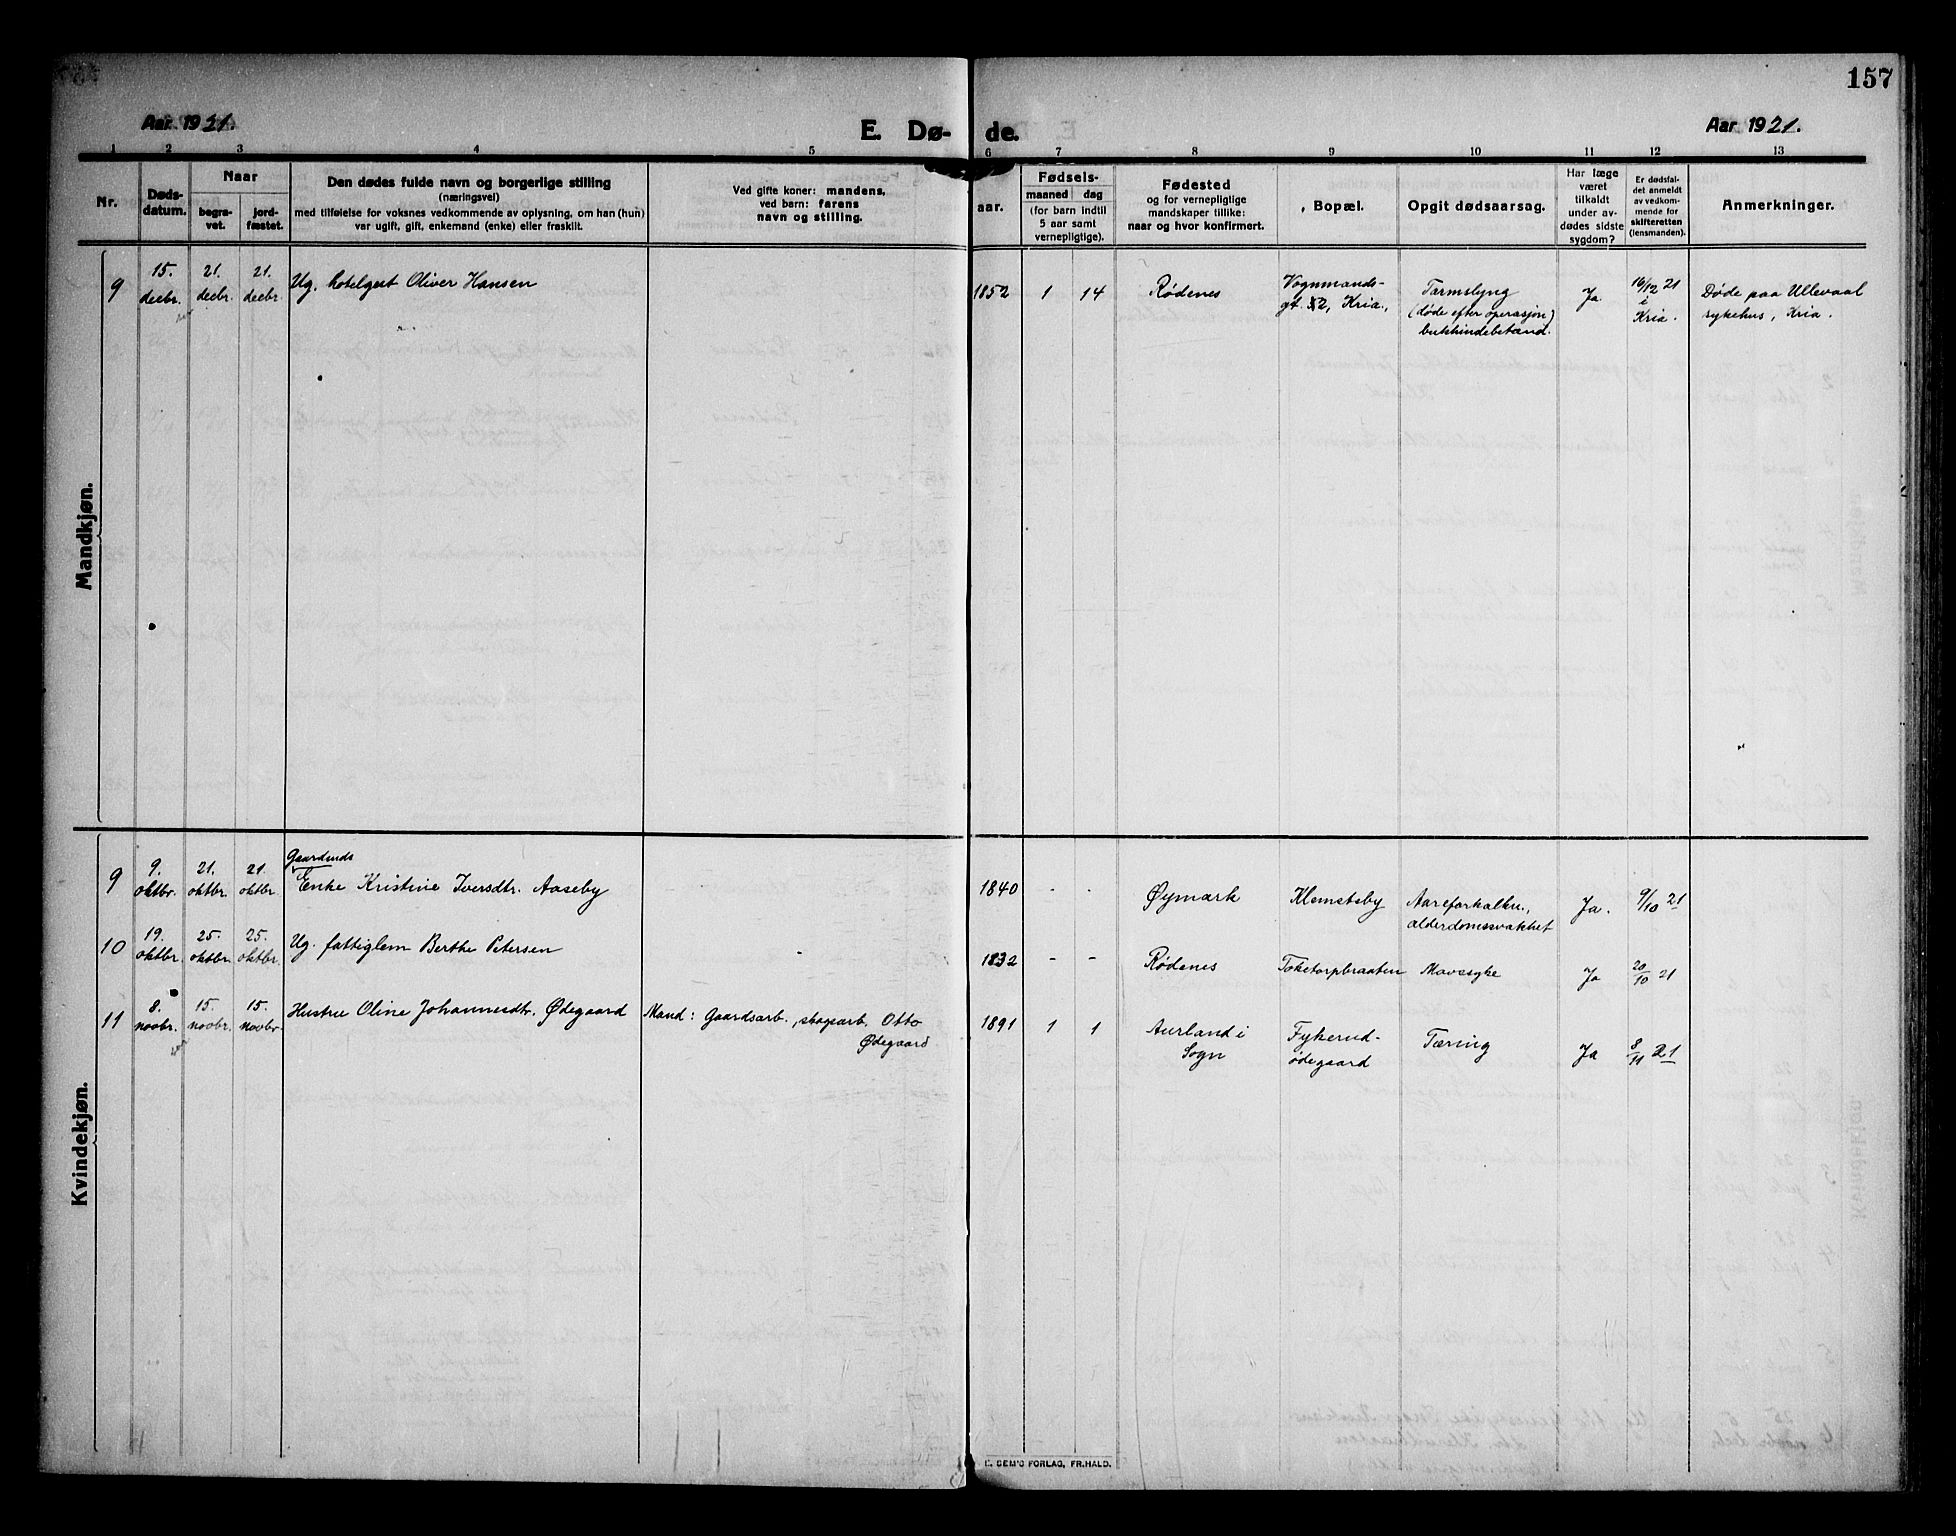 157
Aar 1921.
E. Dø-
de.
Aar 1921.
1 2 3 4 5 6 7 8 9 10 11 12 13
Nr.
Døds-
datum.
Naar
begra-
vet.
jord-
fæstet.
Den dødes fulde navn og borgerlige stilling
(næringsvei)
med tilføielse for voksnes vedkommende av oplysning, om han (hun)
var ugift, gift, enkemand (enke) eller fraskilt.
Ved gifte koner: mandens,
ved barn: farens
navn og stilling.
aar.
Fødsels-
maaned dag
(for barn indtil
5 aar samt
vernepligtige).
Fødested
og for vernepligtige
mandskaper tillike:
naar og hvor konfirmert.
Bopæl.
Opgit dødsaarsag.
Har læge
været
tilkaldt
under av-
dødes sidste
sygdom?
Er dødsfal-
det anmeldt
av vedkom-
mende for
skifteretten
(lensmanden).
Anmerkninger.
Mandkjøn.
9
15.
decbr.
21.
decbr.
21.
decbr.
Ug. hotelgest Oliver Hansen
1852
1
14
Rødenes
Vognmands-
gt. 2, Kria.,
Tarmslyng
(døde efter operasjon)
bukhindebetænd.
Ja
16/12 21
i
Kria.
Døde paa Ullevaal
sykehus, Kria.
Kvindekjøn.
9
9.
oktbr.
21.
oktbr.
21.
oktbr.
Gaardmds
Enke Kristine Iversdtr. Aaseby
1840
-
-
Øymark
Klemetsby
Aareforkalkn.,
alderdomssvakhet
Ja.
9/10 21
10
19.
oktbr.
25.
oktbr.
25.
oktbr.
Ug. fattiglem Berthe Petersen
1832
-
-
Rødenes
Toketorpbraaten
Mavesyke
Ja
20/10 21
11
8.
novbr.
15.
novbr.
15.
novbr.
Hustru Oline Johannesdtr. Ødegaard
Mand: Gaardsarb., skogsarb. Otto
Ødegaard
1891
1
1
Aurland i
Sogn
Fykerud-
ødegaard
Tæring
Ja
8/11 21
SEM'S FORLAG, FR.HALD.